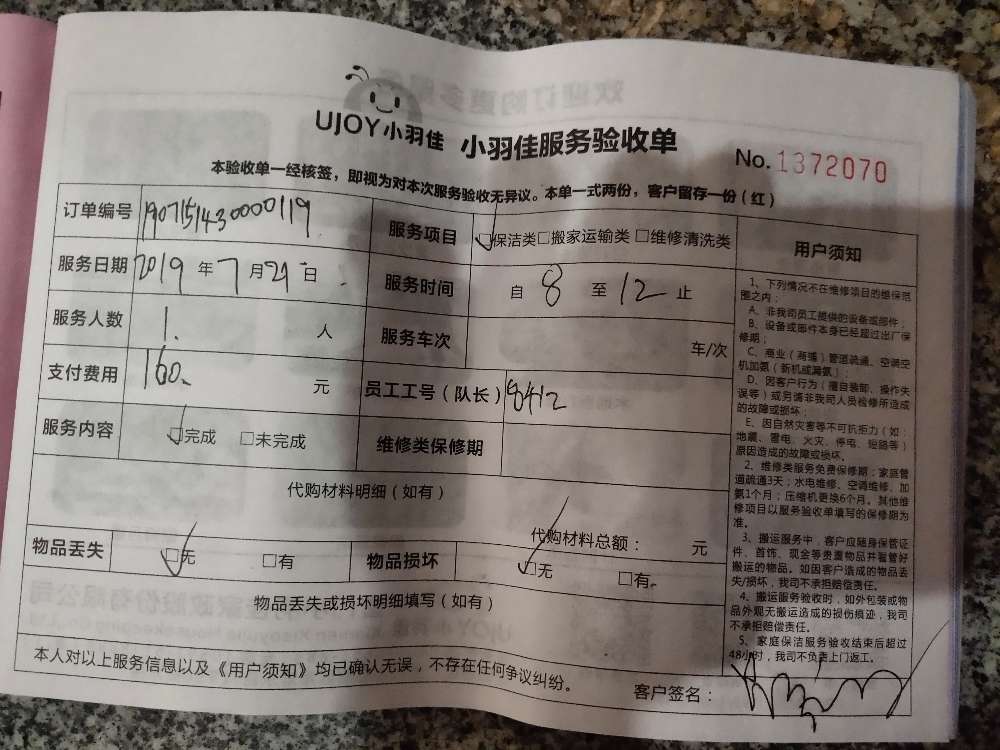 UJOY小羽佳 小羽佳服务验收单
No.1372070
本验收单一经核签，即视为对本次服务验收无异议。本单一式两份，客户留存一份（红）
订单编号 1907151430000119 服务项目 保洁类 搬家运输类 维修清洗类
服务日期 2019 年 7 月 21 日 服务时间 自 8 至 12 止
服务人数 1. 人 服务车次 车/次
支付费用 160. 元 员工工号（队长） 8412
服务内容 完成 未完成 维修类保修期
代购材料明细（如有）
代购材料总额： 元
物品丢失 无 有 物品损坏 无 有
物品丢失或损坏明细填写（如有）
本人对以上服务信息以及《用户须知》均已确认无误，不存在任何争议纠纷。
客户签名：
用户须知
1、下列情况不在维修项目的维保范
围之内：
A、非我司员工提供的设备或部件；
B、设备或部件本身已经超过出厂保
修期；
C、商业（商铺）管道疏通、空调空
机加氨（新机或漏氨）；
D、因客户行为（擅自装卸、操作失
误等）或另请非我司人员检修所造成
的故障或损坏；
E、因自然灾害等不可抗拒力（如：
地震、雷电、火灾、停电、短路等）
原因造成的故障或损坏。
2、维修类服务免费保修期：家庭管
道疏通3天；水电维修、空调维修、加
氨1个月；压缩机更换6个月。其他维
修项目以服务验收单填写的保修期为
准。
3、搬运服务中，客户应随身保管证
件、首饰、现金等贵重物品并看管好
搬运的物品。如因客户造成的物品丢
失/损坏，我司不承担赔偿责任。
4、搬运服务验收时，如外包装或物
品外观无搬运造成的损伤痕迹，我司
不承担赔偿责任。
5、家庭保洁服务验收结束后超过
48小时，我司不负责上门返工。